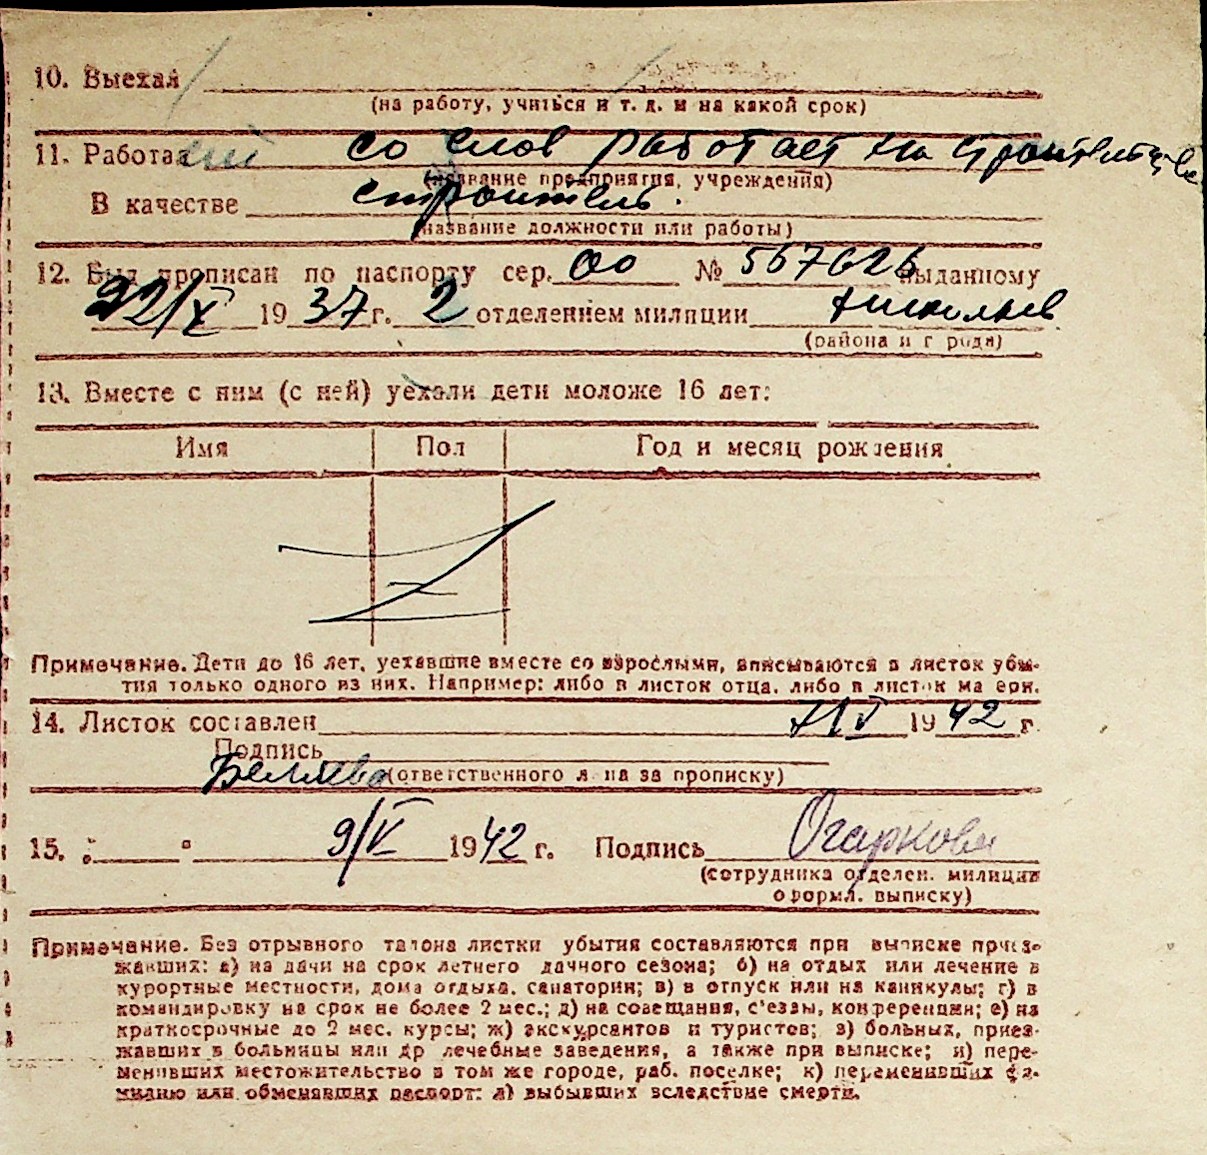 10. Выехал
(на работу, учиться и т. д. и на какой срок)
11. Работа со слов работает на строительстве
(название предприятия, учреждения)
В качестве строитель.
(название должности или работы)
12. Был прописан по паспорту сер. 00 № 567626 выданному
22/X 1937 г. 2 отделением милиции
(района и города)
13. Вместе с ним (с ней) уехали дети моложе 16 лет:
Имя Пол Год и месяц рождения
Z
Примечание. Дети до 16 лет, уехавшие вместе со взрослыми, вписываются в листок убы-
тия только одного из них. Например: либо в листок отца, либо в листок матери.
14. Листок составлен 7/V 1942 г.
Подпись
Беляева (ответственного лица за прописку)
15. " " 9/V 1942 г. Подпись Огаркова
(сотрудника отделен. милиции
оформл. выписку)
Примечание. Без отрывного талона листки убытия составляются при выписке приез-
жавших: а) на дачи на срок летнего дачного сезона; б) на отдых или лечение в
курортные местности, дома отдыха, санатории; в) в отпуск или на каникулы; г) в
командировку на срок не более 2 мес.; д) на совещания, с'езды, конференции; е) на
краткосрочные до 2 мес. курсы; ж) экскурсантов и туристов; з) больных, приез-
жавших в больницы или др лечебные заведения, а также при выписке; и) пере-
менивших местожительство в том же городе, раб. поселке; к) переменивших фа-
милию или обменявших паспорт; л) выбывших вследствие смерти.